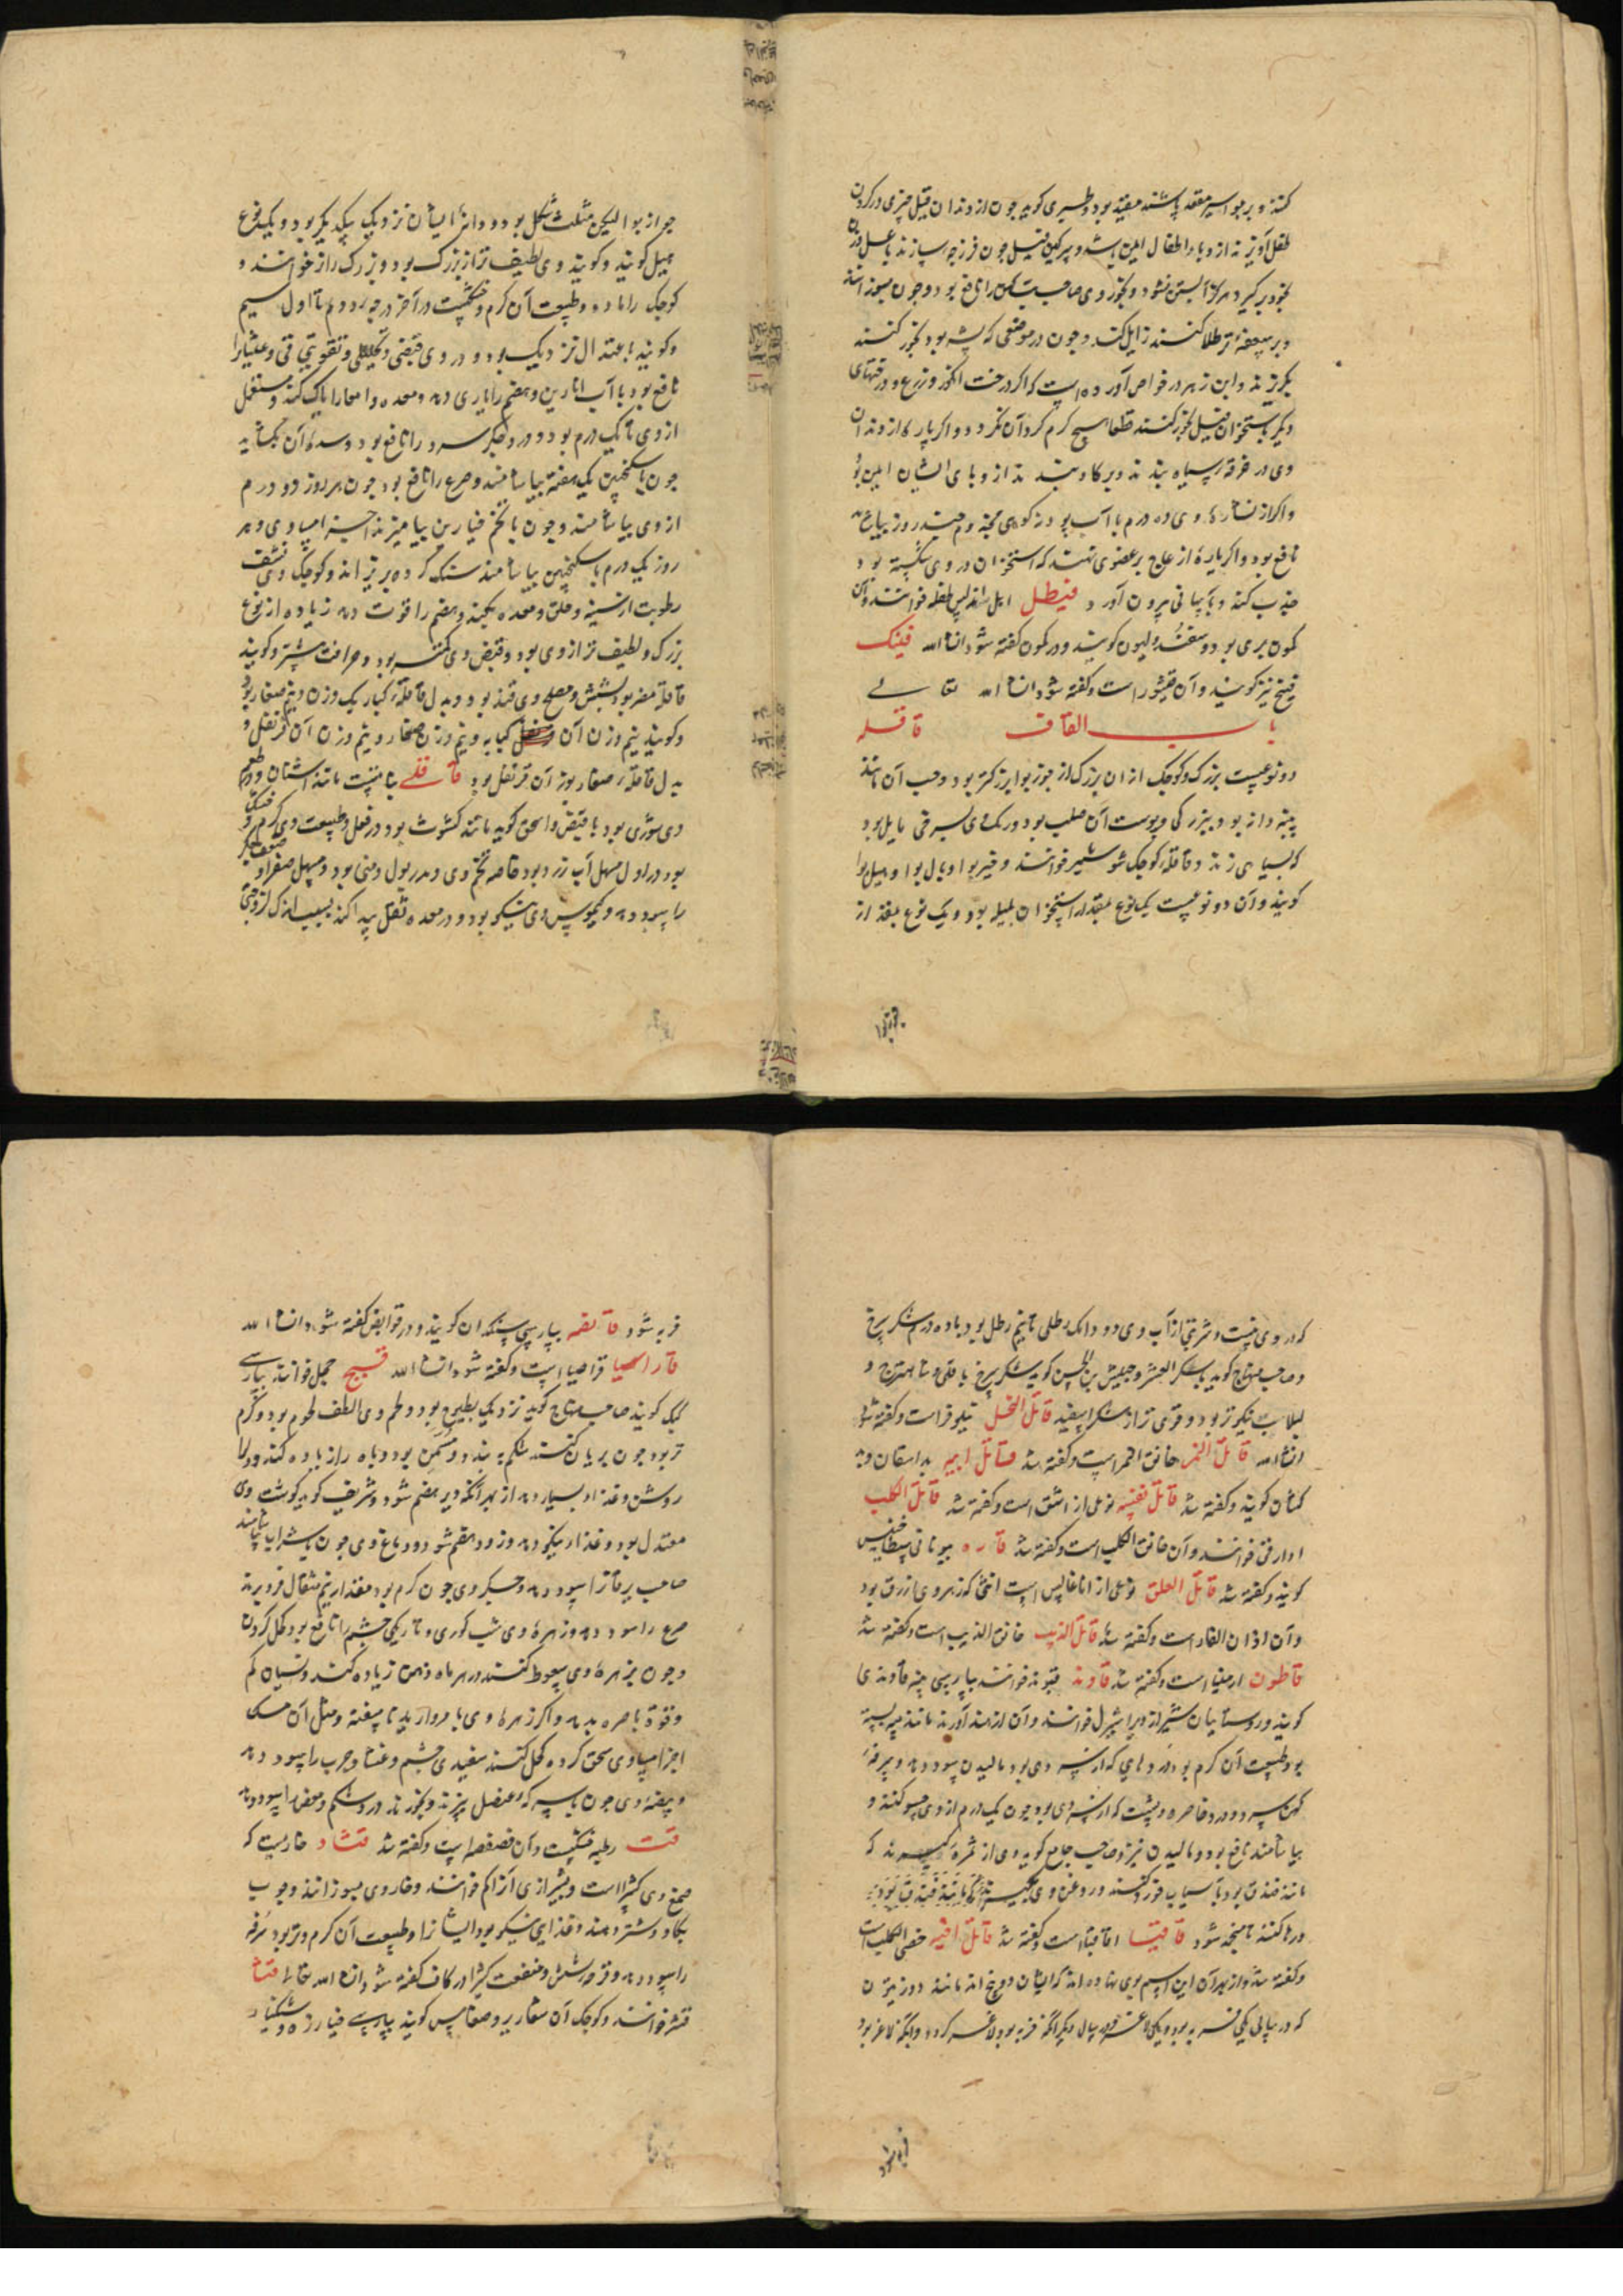 کند و بر بواسیر مقعد پاشند مفید بود و طبری کوید جون از دندان فیل چیزی در کردن
طفل آویزند از وبا و اطفال ایمن باشد و سرکین فیل جون فرزجه سازند با عسل و زن
بخود برکیرد هرکز آبستن نشود و بخور وی صاحب تب کهن را نافع بود و جون بسوزانند
و بر سعفه تر طلا کنند زایل کند و جون در موضعی که پشه بود بخور کنند
بکریزند و ابن زهر در خواص آورده است که اکر درخت انکور و زرع و درختهای
دیکر باستخوان فیل بخور کنند قطعا هیچ کرم کرد آن نکردد و اکر پاره از دندان
وی در خرقه سیاه بندند و بر کاو بندند از وبای ایشان ایمن بود
و اکر از نشاره وی ده درم با آب پودنه کوهی بجذوم چند روز بیاشامد
نافع بود و اکر پاره از عاج بر عضوی نهند که استخوان در وی شکسته بود
جذب کند و بآسانی بیرون آورد فیطل اهل اندلس لفظه خوانند و آن
کمون بری بود و سقندولیون کویند و در کمون کفته شود انشاء الله فینک
فینج نیز کویند و آن قیشور است و کفته شود انشاء الله تعالی
باب القاف قاقله
دو نوعست بزرک و کوجک از آن بزرک از جوزبوا بزرکتر بود و حب آن مانند
پنبه دانه بود بزرکی و پوست آن صلب بود و رنک وی بسرخی مایل بود
که بسیاهی زند و قاقله کوجک شوشمیر خوانند و خیربوا و بال بوا و هیل بوا
کویند و آن دو نوعست یک نوع بمقدار استخوان بلیله بود و یک نوع بمقدار
جوزبوا لیکن مثلث شکل بود و دانهای ایشان نزدیک یکدیکر بود و یک نوع
هیل کویند و کویند وی لطیف تر از بزرک بود و بزرک را نر خوانند و
کوجک را ماده و طبیعت آن کرم و خشکست در آخر درجه دوم تا اول سیم
و کویند باعتدال نزدیک بود و در وی قبضی و تحلیلی و تقویتی قی و غثیانرا
نافع بود با آب انارین و هضم را یاری دهد و معده و امعا را پاک کند و مستعمل
از وی تا یک درم بود و درد جکر سرد را نافع بود و سده آن بکشاید
جون با سکنجبین یک هفته بیاشامند و صرع را نافع بود جون هر روز دو درم
از وی بیاشامند و جون با تخم خیارین بیامیزند اجزا مساوی و هر
روز یک درم با سکنجبین بیاشامند سنک کرده بریزاند و کوجک وی نشف
رطوبت از سینه و حلق و معده بکند و هضم را قوت دهد زیاده از نوع
بزرک و لطیف تر از وی بود و قبض وی کمتر بود و حرافت بیشتر و کویند
قاقله مضر بود بشش و مصلح وی قند بود و بدل قاقله کبار یک وزن و نیم صغار بود
و کویند نیم وزن آن کبابه و نیم وزن صغار و نیم وزن آن قرنفل و
بدل قاقله صغار بوزن آن قرنفل بود قاقلی نباتیست مانند اشنان و در طعم
وی شوری بود با قبض و اسحق کوید مانند کشوث بود در فعل و طبیعت وی کرم و خشک
بود در اول مسهل آب زرد بود خاصه تخم وی و مدر بول و منی بود و مسهل صفرا و ضعف جکر
را سود دهد و کیموس وی نیکو بود و در معده ثقل پیدا کند بسبب اندک لزوجتی
که در وی هست و شربتی از آب وی دو دانک رطلی تا نیم رطل بود با ده درم شکر سرخ
و صاحب منهاج کوید با شکر العشر و حبیش بن الحسن کوید شکر سرخ با قلی و شاهترج و
لبلاب نیکوتر بود و قوی تر از شکر سفید قاتل النحل نیلوفر است و کفته شود
انشاء الله قاتل النمر خانق النمر است و کفته شد قاتل ابیه بد اسقان و بد
کشان کویند و کفته شد قاتل نفسه نوعی از اشق است و کفته شد قاتل الکلب
ادارقی خوانند و آن خانق الکلب است و کفته شد قاره بیونانی
کویند و کفته شد قاتل العلق نوعی از اناغالیس است انثی که زهر وی ازرق بود
و آن اذان الفار است و کفته شد قاتل الذئب خانق الذئب است و کفته شد
قاطون ارمنیا است و کفته شد قاوند قیوند خوانند بپارسی پیه قاوندی
کویند و روستائیان شیراز ویرا شیرل خوانند و آن از هند آورند مانند پیه بسته
بود طبیعت آن کرم بود و دردهای که از سردی بود مالیدن سود دهد و سرفه
کهن سرد و درد خاصره و پشت که از سردی بود جون یک درم از وی حسو کنند و
بیاشامند نافع بود و مالیدن نیز و صاحب جامع کوید وی از ثمره کیرند که
مانند فندق بود بآسیاب خورد کنند و روغن وی بکیرند که مانند فندق بود
و رها کنند تا منجمد شود قاقیبا اقاقیا است و کفته شد قاتل اخیه خصی الکلب است
و کفته شد و از بهر آن این اسم بوی نهاده اند که ایشان دو بیخ اند مانند دو زیتون
که در سالی یکی فربه بود و یکی لاغر و سال دیکر آنکه فربه بود لاغر کردد و آنکه لاغر بود
فربه شود قانصه بپارسی سنکدان کویند و در قوابض کفته شود انشاء الله
قاراصیا قراصیا است و کفته شود انشاء الله قبج حجل خوانند بپارسی
کبک کویند صاحب منهاج کوید نزدیک بطیهوج بود و لحم وی الطف لحوم بود و کرم
تر بود جون بریان کنند شکم به بندد و مسمن بود و باه را زیاده کند و دل
روشن و غذاء بسیار دهد از بهر آنکه دیر هضم شود و شریف کوید کوشت وی
معتدل بود و غذا نیکو دهد و زود هضم شود و دماغ وی جون با شراب بیاشامند
صاحب یرقانرا سود دهد و جکر وی جون کرم بود مقدار نیم مثقال فرو برند
صرع را سود دهد و زهره وی شب کوری و تاریکی چشم را نافع بود کحل کردن
و جون بزهره وی سعوط کنند در هر ماه ذهن زیاده کند و نسیان کم
و قوة باصره بدهد و اکر زهره وی با مروارید ناسفته و مثل آن مسک
اجزا مساوی سحق کرده کحل کنند سفیدی چشم و غشا و جرب را سود دهد
و بیضه وی جون با سرکه عنصل بپزند و بخورند درد شکم و مغص را سود دهد
قت رطبه خشکست و آن فصفصه است و کفته شد قتاد خاریست که
صمغ وی کتیرا است و بشیرازی آنرا کم خوانند و خار وی بسوزانند و جوب
بکاو و شتر دهند و غذایی نیکو بود ایشانرا و طبیعت آن کرم و تر بود سرفه
را سود دهد و قرحه شش و منفعت کتیرا در کاف کفته شود انشاء الله تعالی قثا
قثد خوانند و کوجک آن شعاریر و ضغابیس کویند بپارسی خیارزه و